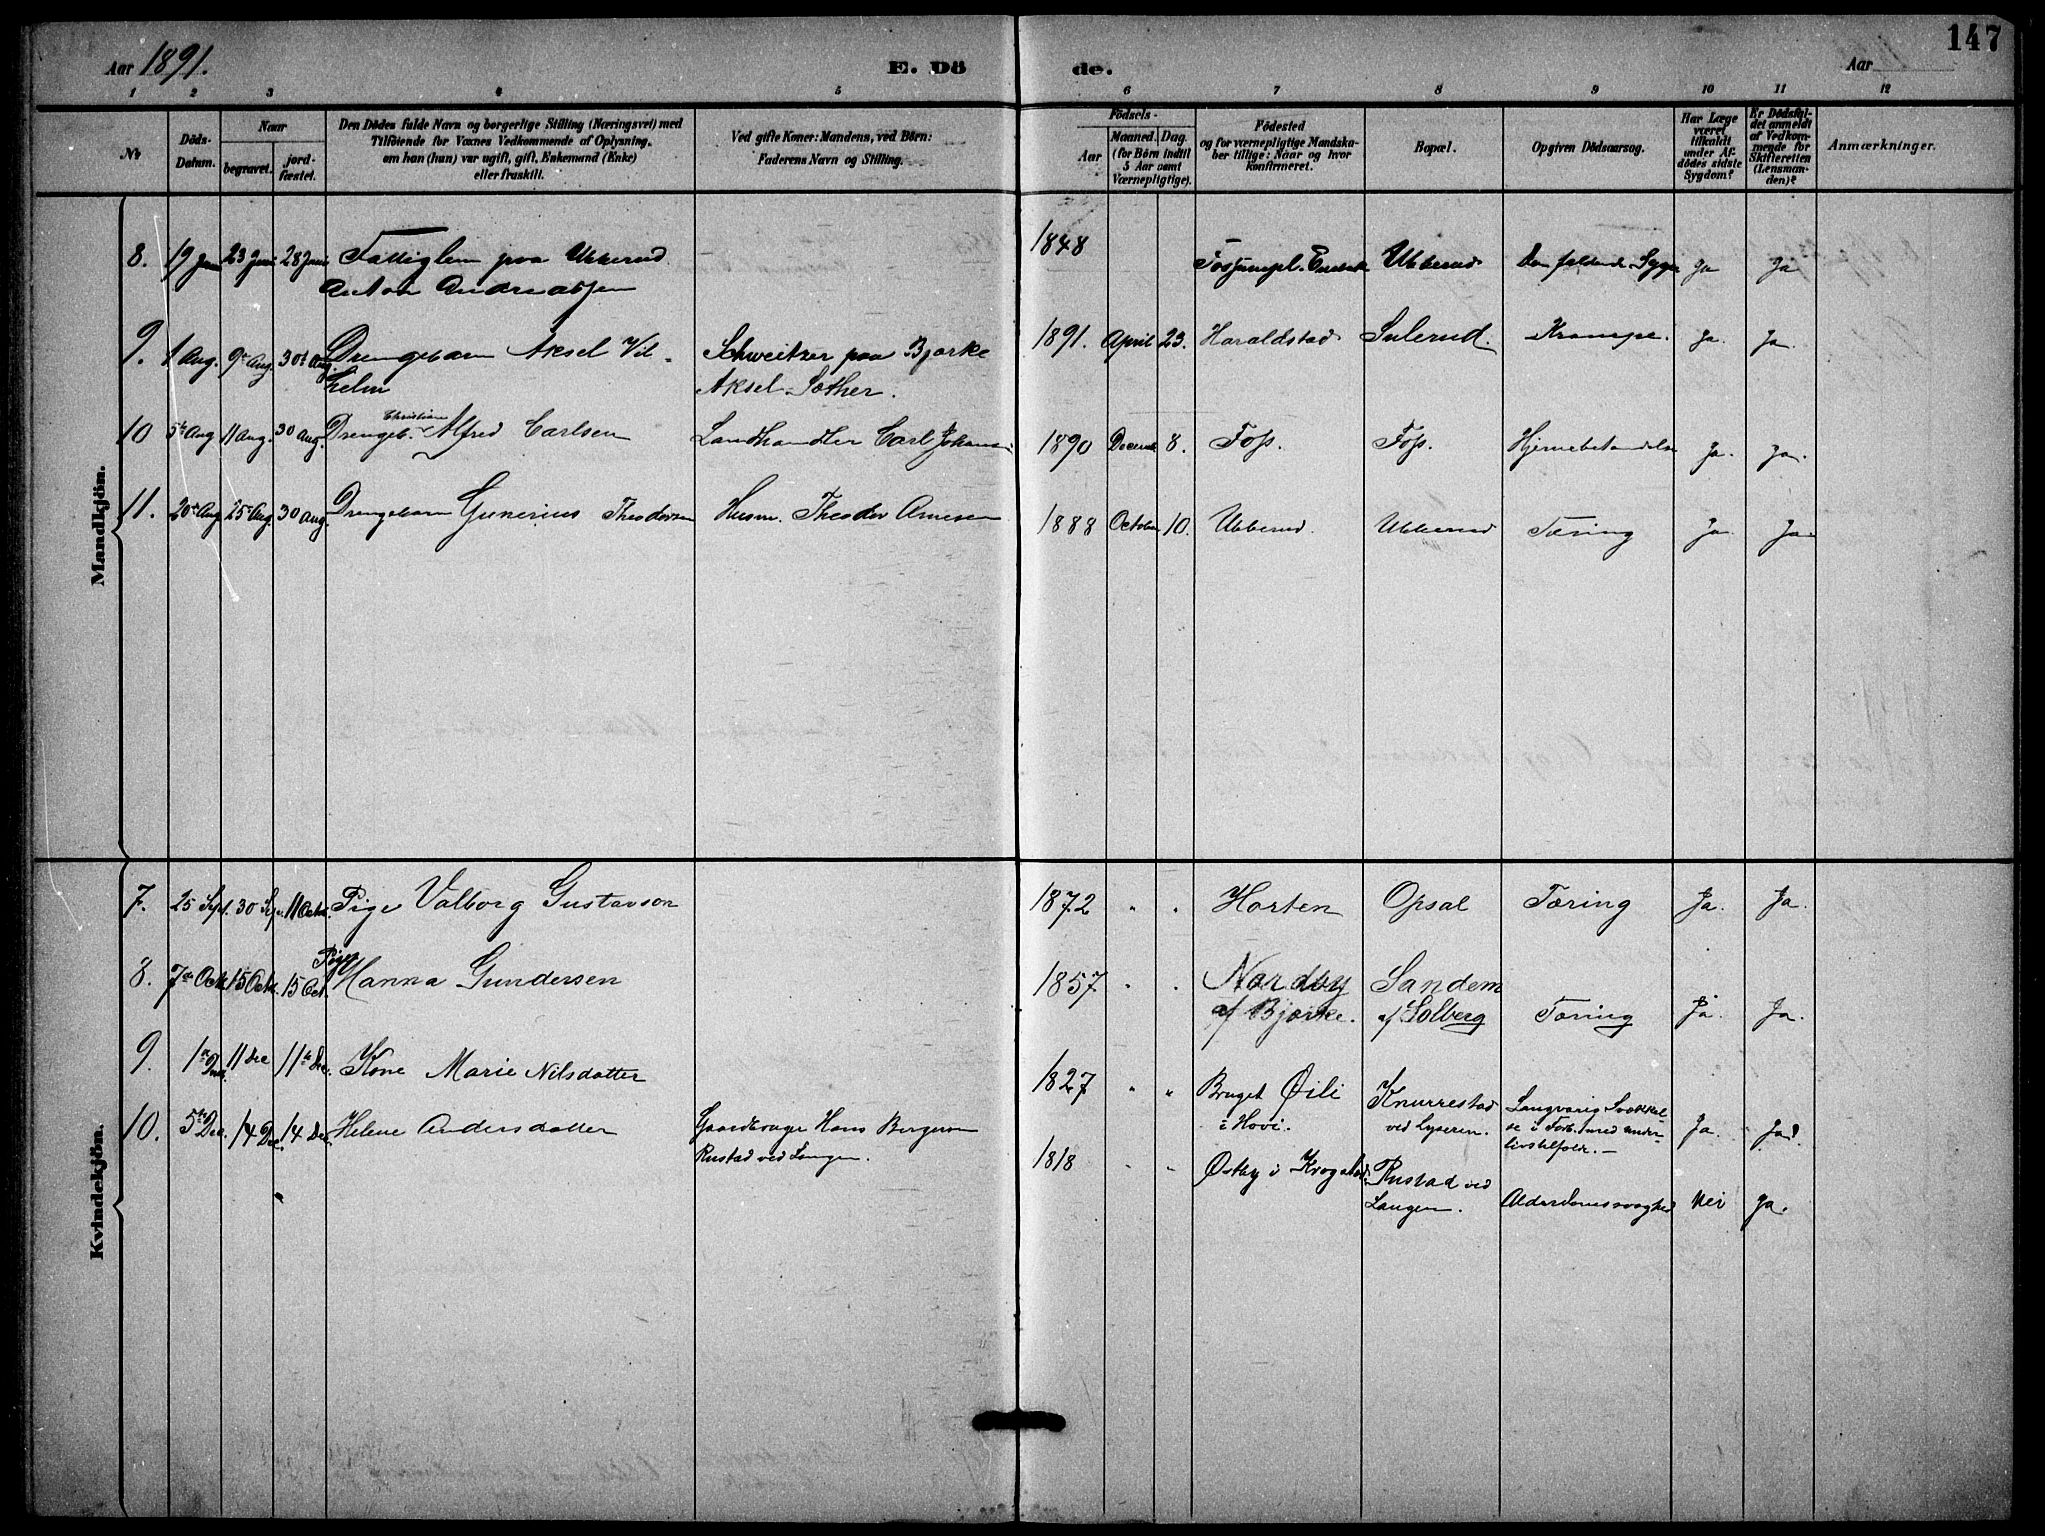 147
Aar 1891.
E. Dö
de.
Aar
1 2 3 4 5 6 7 8 9 10 11 12
№
Döds-
Datum.
Naar
begravet.
jord-
fæstet.
Den Dödes fulde Navn og borgerlige Stilling (Næringsvei) med
Tilföiende for Voxnes Vedkommende af Oplysning,
om han (hun) var ugift, gift, Enkemand (Enke)
eller fraskilt.
Ved gifte Koner: Mandens, ved Börn:
Faderens Navn og Stilling.
Födsels-
Aar
Maaned. Dag.
(for Börn indtil
5 Aar samt
Værnepligtige).
Födested
og for værnepligtige Mandska-
ber tillige: Naar og hvor
konfirmeret.
Bopæl.
Opgiven Dödsaarsag.
Har Læge
været
tilkaldt
under Af-
dödes sidste
Sygdom?
Er Dödsfal-
det anmeldt
af Vedkom-
mende for
Skifteretten
(Lensman-
den)?
Anmærkninger.
Mandkjön.
8. 19 Juni 23 Juni 28 Juni Fattiglem paa Ubberud 1848 Ubberud Den faldende Syge Ja Ja
Anton Andreassen
9. 1 Aug. 9de Aug. 30te Aug. Drengebarn Aksel Vil- Schweitzer paa Bjørke 1891. April 23. Haraldstad Sulerud. Krampe. Ja. Ja.
helm Aksel Sother.
Christian
10 5te Aug 11 Aug. 30 Aug. Drengeb. Alfred Carlsen Landhandler Carl Johansen 1890 Decemb 8. Foss. Foss. Hjernebetændelse Ja. Ja.
11. 20de Aug 25de Aug. 30 Aug. Drengebarn Gunerius Theodorsen Husm. Theodor Arnesen 1888 October 10. Ubberud. Ubberud Tæring Ja. Ja.
Kvindekjön.
7. 25 Sept. 30 Sep. 11 Octr. Pige Valborg Gustavson 1872 " " Horten Opsal Tæring Ja. Ja.
Pige
8. 7de Octr. 15 Octr. 15 Oct. Hanna Gundersen 1857 " " Nordby Sandem
af Bjørke. af Solberg Tæring Ja. Ja.
9. 1ste Dec. 11 Dec 11te Dec. Kone Marie Nilsdatter 1827 " " Bruget Øili Knurrestad Langvarig Svækkel-
i Hovi. ved Lyseren. se i Forb. med under- Ja. Ja.
livstilfælde. —
10. 5te Dec. 14 Dec. 14 Dec. Helene Andersdatter Gaardbruger Hans Bergersen 1818 " " Østby i Krogstad Rustad ved
Rustad ved Langen. Langen. Alderdomssvaghed Nei Ja.